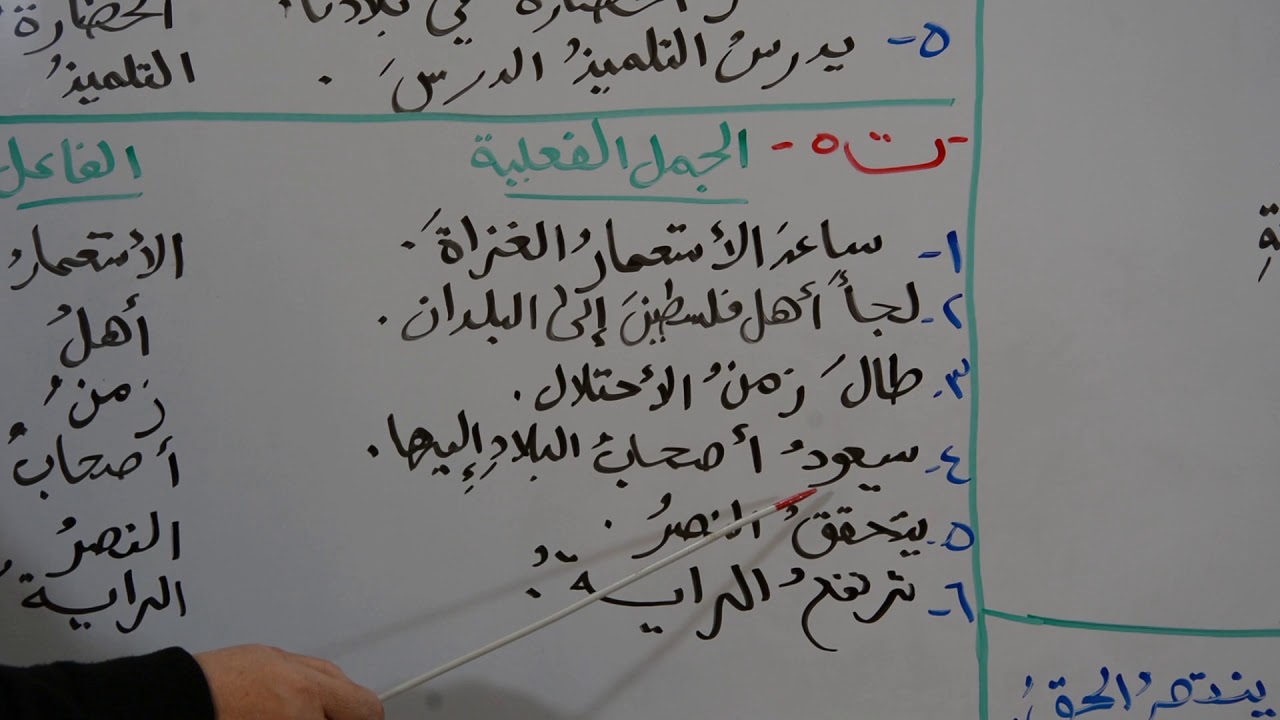 الحضارة
٥- يدرسُ التلميذُ الدرسَ . التلميذُ
-ت ٥- الجمل الفعلية الفاعل
١- ساعدَ الأستعمارُ الغزاةَ . الأستعمارُ
٢- لجأَ أهل فلسطينَ إلى البلدان . أهلُ
٣- طالَ زمنُ الأحتلال . زمنُ
٤- سيعودُ أصحابُ البلادِ إليها . أصحابُ
٥- يتحققُ النصرُ . النصرُ
٦- ترتفعُ الرايةُ . الراية
ينتصرُ الحقُ